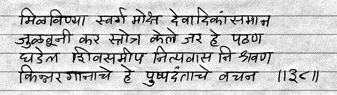 मिळविण्या स्वर्ग मोक्ष देवादिकांसमान
जुळवूनी कर स्तोत्र केले जर हे पठण
घडेल शिवसमीप नित्यवास नि श्रवण
किन्नरगानाचे हे पुष्पदंताचे वचन ॥३८॥